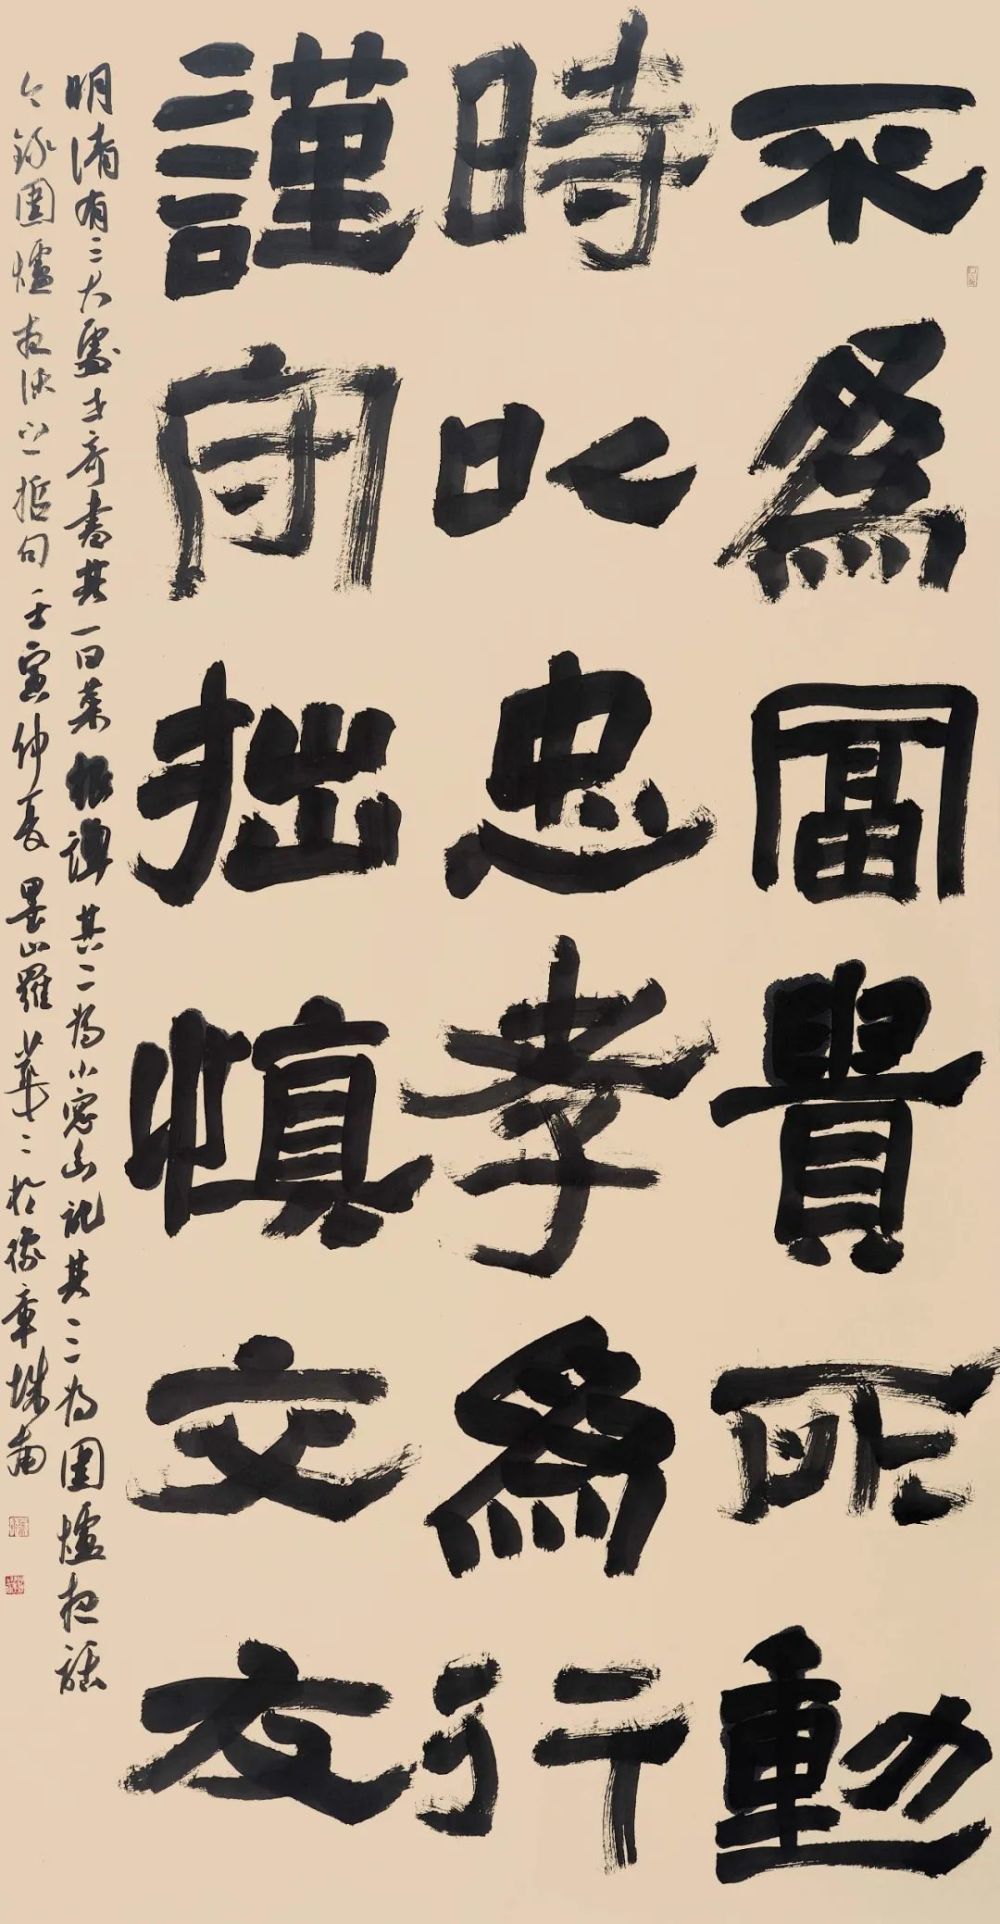 不為富貴所動
時以忠孝為行
謹守拙慎交友
明清有三大處世奇書其一曰菜根譚其二為小窗幽記其三為圍爐夜話
今錄圍爐夜話之一哲句壬寅仲夏墨山羅華於豫章城南